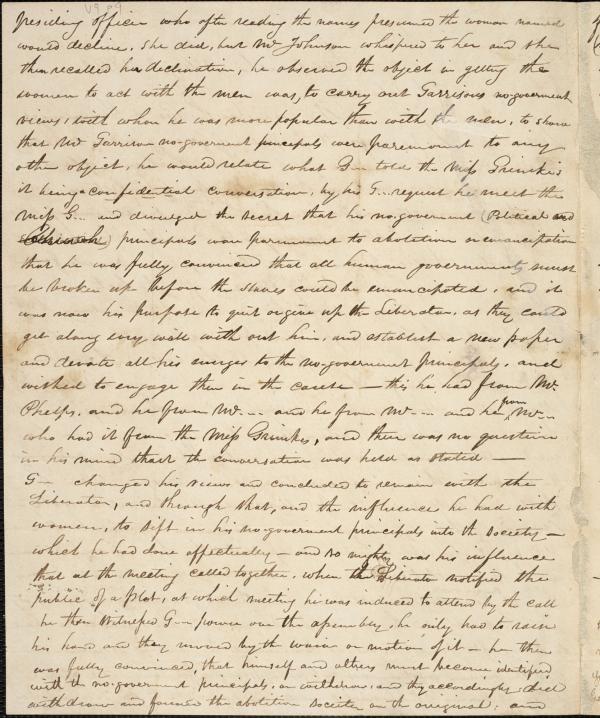 presiding officer who after reading the names presumed the woman named
would decline. She did, but Mr Johnson whispered to her and she
then recalled her declination, he observed the object in getting the
women to act with the men was, to carry out Garrisons no-government
views, with whom he was more popular than with the men, to show
that Mr Garrison no-goverment principals were paremount to any
other object, he would relate what G— told the Miss Grimkes
it being a confidential conversation, by his G... request he meet the
Miss G... and divuleged the secret that his no government (Political and
Church) principals were parimount to abolition or emancipation
that he was fully convinced that all human governments must
be broken up before the slaves could be emancipated, and it
was now his purpose to quit or give up the Liberator, as they could
get along very well with out him, and establish a new paper
and devote all his energes to the no-government principals, and
wished to engage them in the cause — this he had from Mr.
Phelps, and he from Mr. -- and he from Mr --- and he from Mr. --
who had it from the Miss Grimkes, and there was no question
in his mind that the conversation was held as stated —
G— changed his views and concluded to remain with the
Liberator, and through that, and the influence he had with
women, to sift in his no-goverment principals into the society —
which he had done affectually — and so mighty was his influence
that at the meeting called together, when the Liberator notified the
public of a Plot, at which meeting he was induced to attend by the call
he then Witnessed G— power over the assembly, he only had to raise
his hand and they moved by the waive or motion of it — he then
was fully convinced, that himself and others must become identified
with the no-goverment principals, or withdraw, and they accordingly did
withdraw and formed the abolition society on the original; and